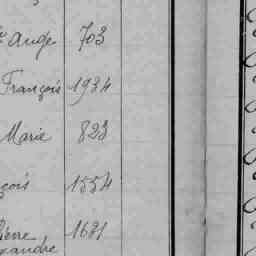 Ange 703
François 1934
Marie 823
çois 1554
ierre 1681
exandre